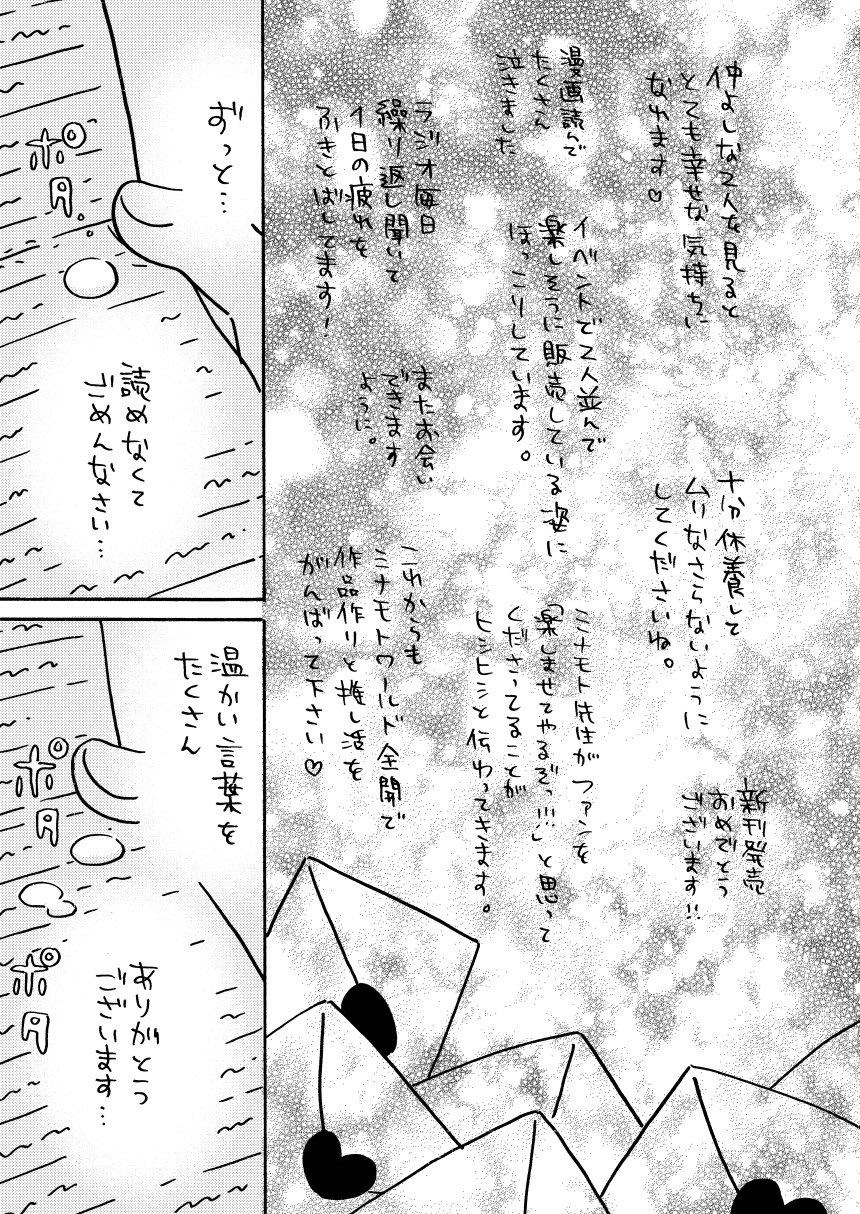 仲よしな2人を見ると
とても幸せな気持ちに
なれます♡
漫画読んで
たくさん
泣きました
ラジオ毎日
繰り返し聞いて
1日の疲れを
ふきとばしてます!
イベントで2人並んで
楽しそうに販売している姿に
ほっこりしています。
またお会い
できます
ように。
十分休養して
ムリなさらないように
してくださいね。
ミナモト先生がファンを
「楽しませてやるぞっ!!!」と思って
くださってることが
ヒシヒシと伝わってきます。
これからも
ミナモトワールド全開で
作品作りと推し活を
がんばって下さい♡
新刊発売
おめでとう
ございます!!
ずっと…
ポタ
読めなくて
ごめんなさい…
温かい言葉を
たくさん
ポタ
ありがとう
ございます…
ポタ